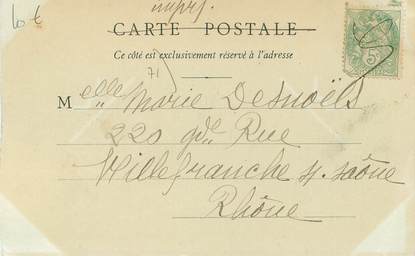 10 €
impr.
CARTE POSTALE
Ce côté est exclusivement réservé à l'adresse
71
Melle Marie Desnoëls
220 gde Rue
Villefranche s. saône
Rhône
5